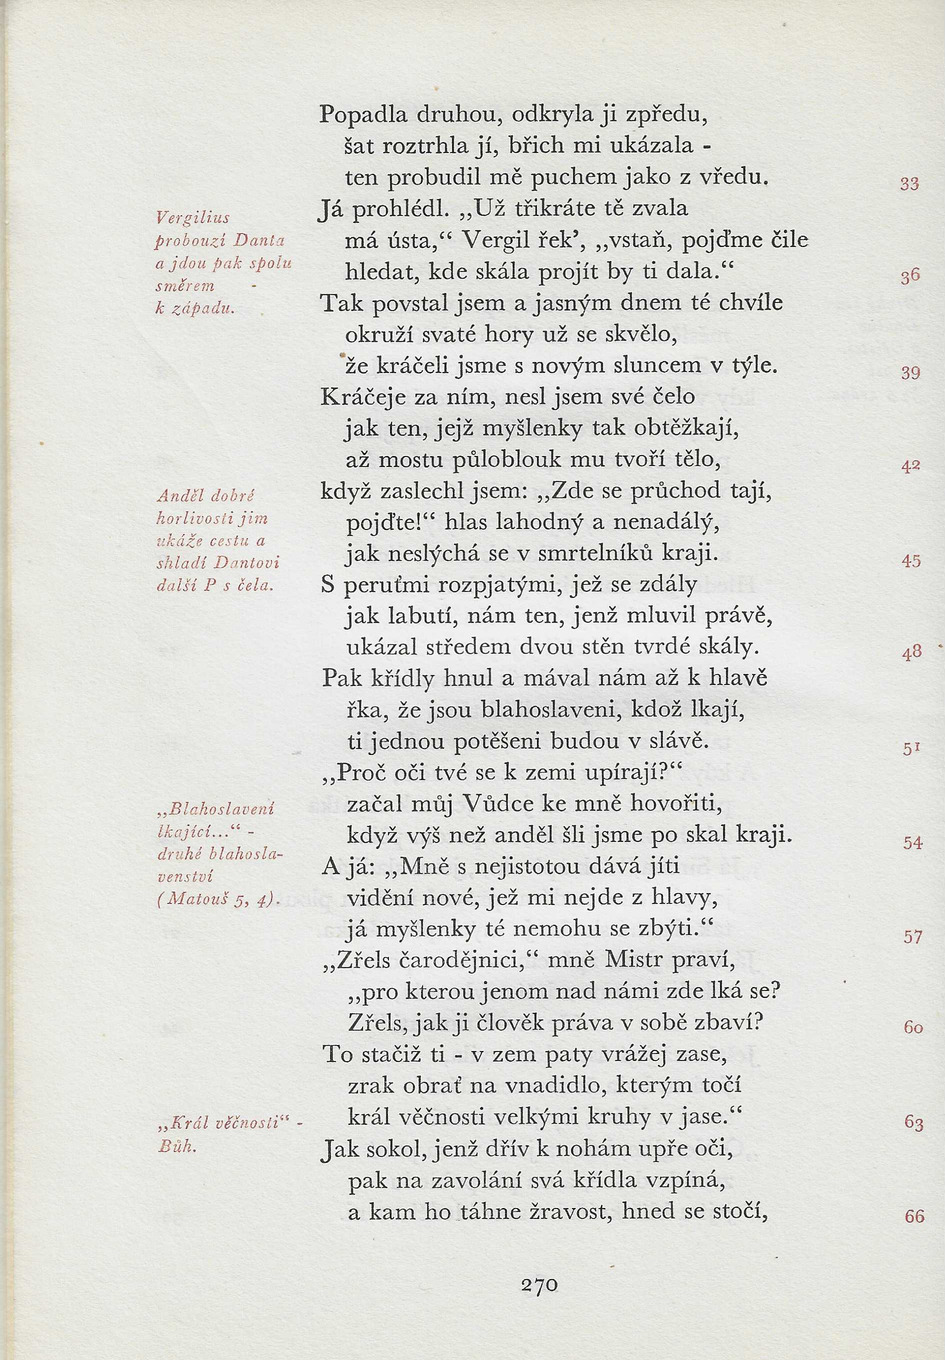 Popadla druhou, odkryla ji zpředu,
šat roztrhla jí, břich mi ukázala -
ten probudil mě puchem jako z vředu.
33
Já prohlédl. „Už třikráte tě zvala
má ústa,“ Vergil řek’, „vstaň, pojďme čile
hledat, kde skála projít by ti dala.“
36
Vergilius
probouzí Danta
a jdou pak spolu
směrem
k západu.
Tak povstal jsem a jasným dnem té chvíle
okruží svaté hory už se skvělo,
že kráčeli jsme s novým sluncem v týle.
39
Kráčeje za ním, nesl jsem své čelo
jak ten, jejž myšlenky tak obtěžkají,
až mostu půloblouk mu tvoří tělo,
42
když zaslechl jsem: „Zde se průchod tají,
pojďte!“ hlas lahodný a nenadálý,
jak neslýchá se v smrtelníků kraji.
45
Anděl dobré
horlivosti jim
ukáže cestu a
shladí Dantovi
další P s čela.
S peruťmi rozpjatými, jež se zdály
jak labutí, nám ten, jenž mluvil právě,
ukázal středem dvou stěn tvrdé skály.
48
Pak křídly hnul a mával nám až k hlavě
řka, že jsou blahoslaveni, kdož lkají,
ti jednou potěšeni budou v slávě.
51
„Proč oči tvé se k zemi upírají?“
začal můj Vůdce ke mně hovořiti,
když výš než anděl šli jsme po skal kraji.
54
„Blahoslavení
lkající...“ -
druhé blahosla-
venství
(Matouš 5, 4).
A já: „Mně s nejistotou dává jíti
vidění nové, jež mi nejde z hlavy,
já myšlenky té nemohu se zbýti.“
57
„Zřels čarodějnici,“ mně Mistr praví,
„pro kterou jenom nad námi zde lká se?
Zřels, jak ji člověk práva v sobě zbaví?
60
To stačiž ti - v zem paty vrážej zase,
zrak obrať na vnadidlo, kterým točí
král věčnosti velkými kruhy v jase.“
63
„Král věčnosti“ -
Bůh.
Jak sokol, jenž dřív k nohám upře oči,
pak na zavolání svá křídla vzpíná,
a kam ho táhne žravost, hned se stočí,
66
270